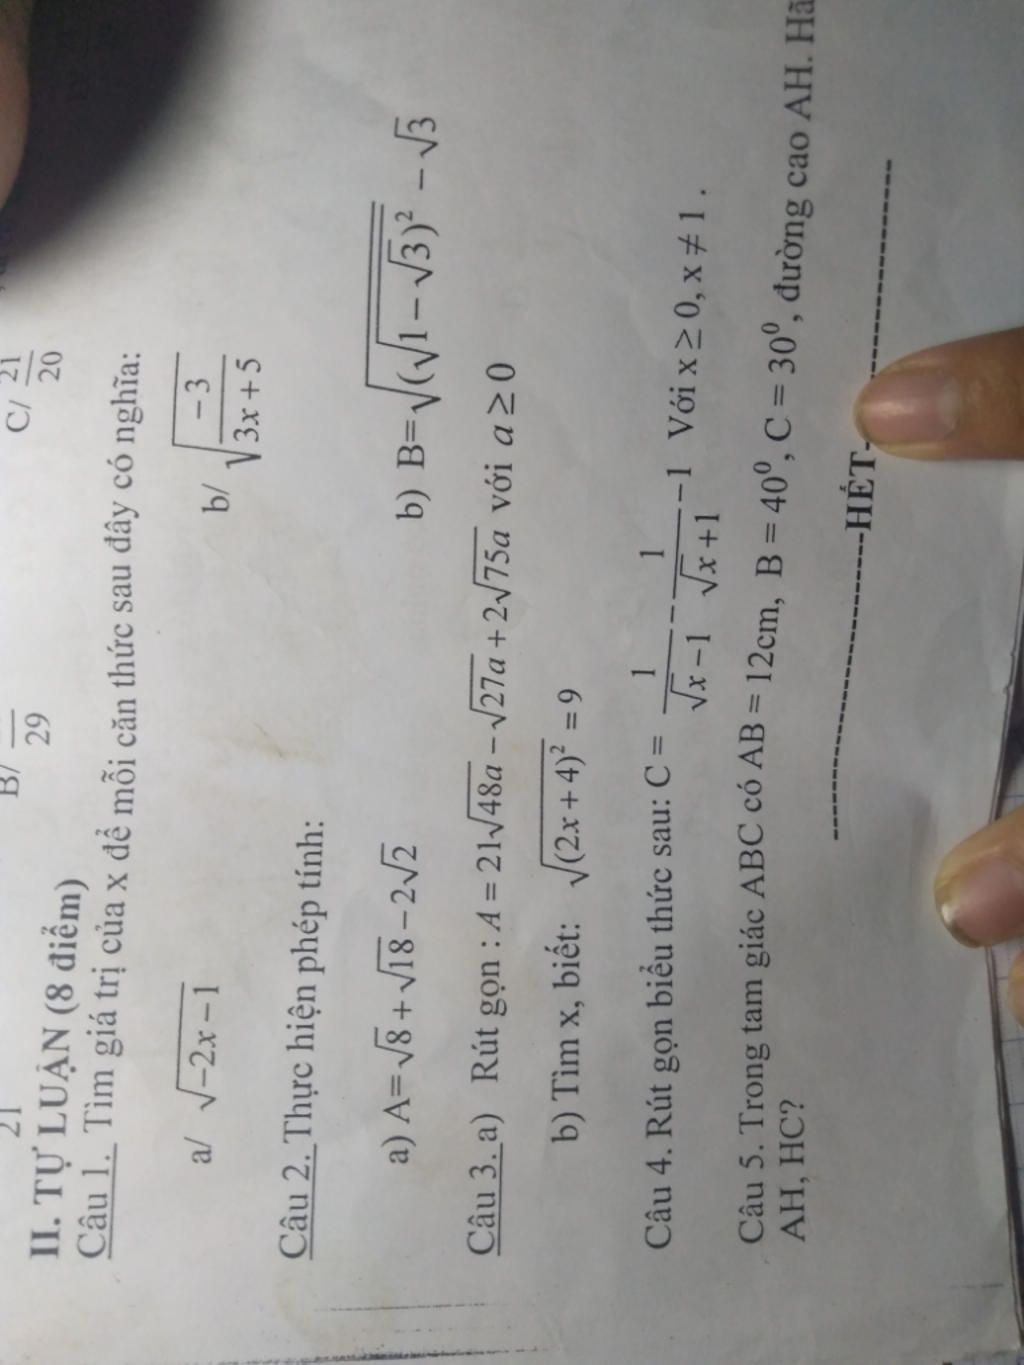 21 B/ 29 C/ 21/20
II. TỰ LUẬN (8 điểm)
Câu 1. Tìm giá trị của x để mỗi căn thức sau đây có nghĩa:
a/ √(-2x-1) b/ √(-3/(3x+5))
Câu 2. Thực hiện phép tính:
a) A=√8+√18-2√2 b) B=√(√(1-√3)²) -√3
Câu 3. a) Rút gọn : A = 21√48a - √27a + 2√75a với a ≥ 0
b) Tìm x, biết: √(2x+4)² = 9
Câu 4. Rút gọn biểu thức sau: C = 1/(√x-1) - 1/(√x+1) -1 Với x ≥ 0, x ≠ 1 .
Câu 5. Trong tam giác ABC có AB = 12cm, B = 40⁰, C = 30⁰, đường cao AH.
AH, HC?
HẾT